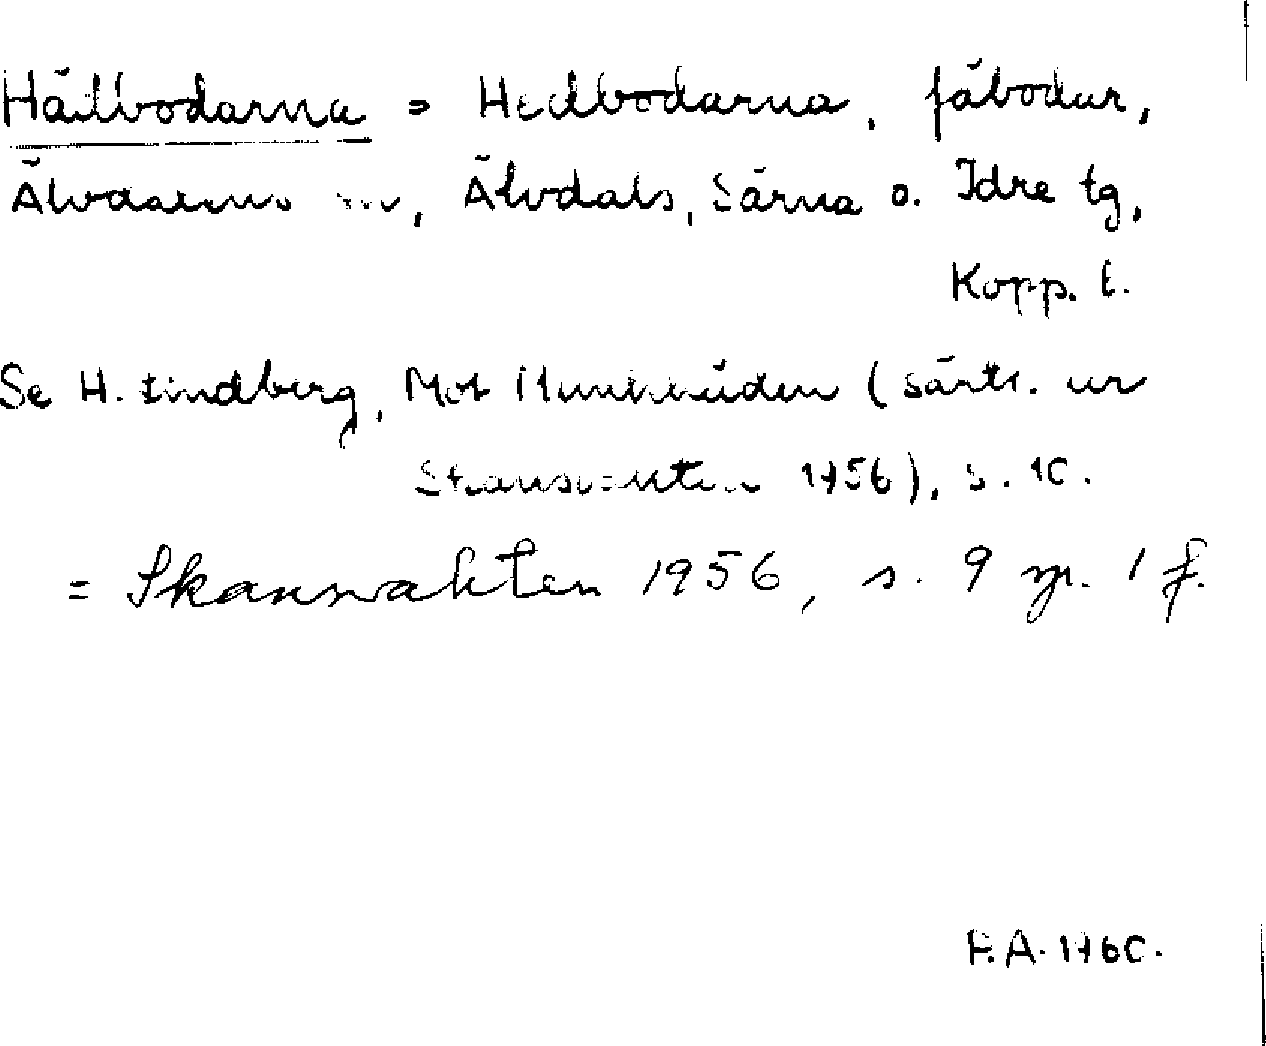 Hälbodarna = Hedbodarna, fäbodar,
Älvdalens sn, Älvdals, Särna o. Idre tg,
Kopp. l.
Se H. Lindberg, Mot (särtr. ur
Skansvakten 1956), s. 10.
= Skansvakten 1956, s. 9 sp. 1 f.
P.A. 1960.